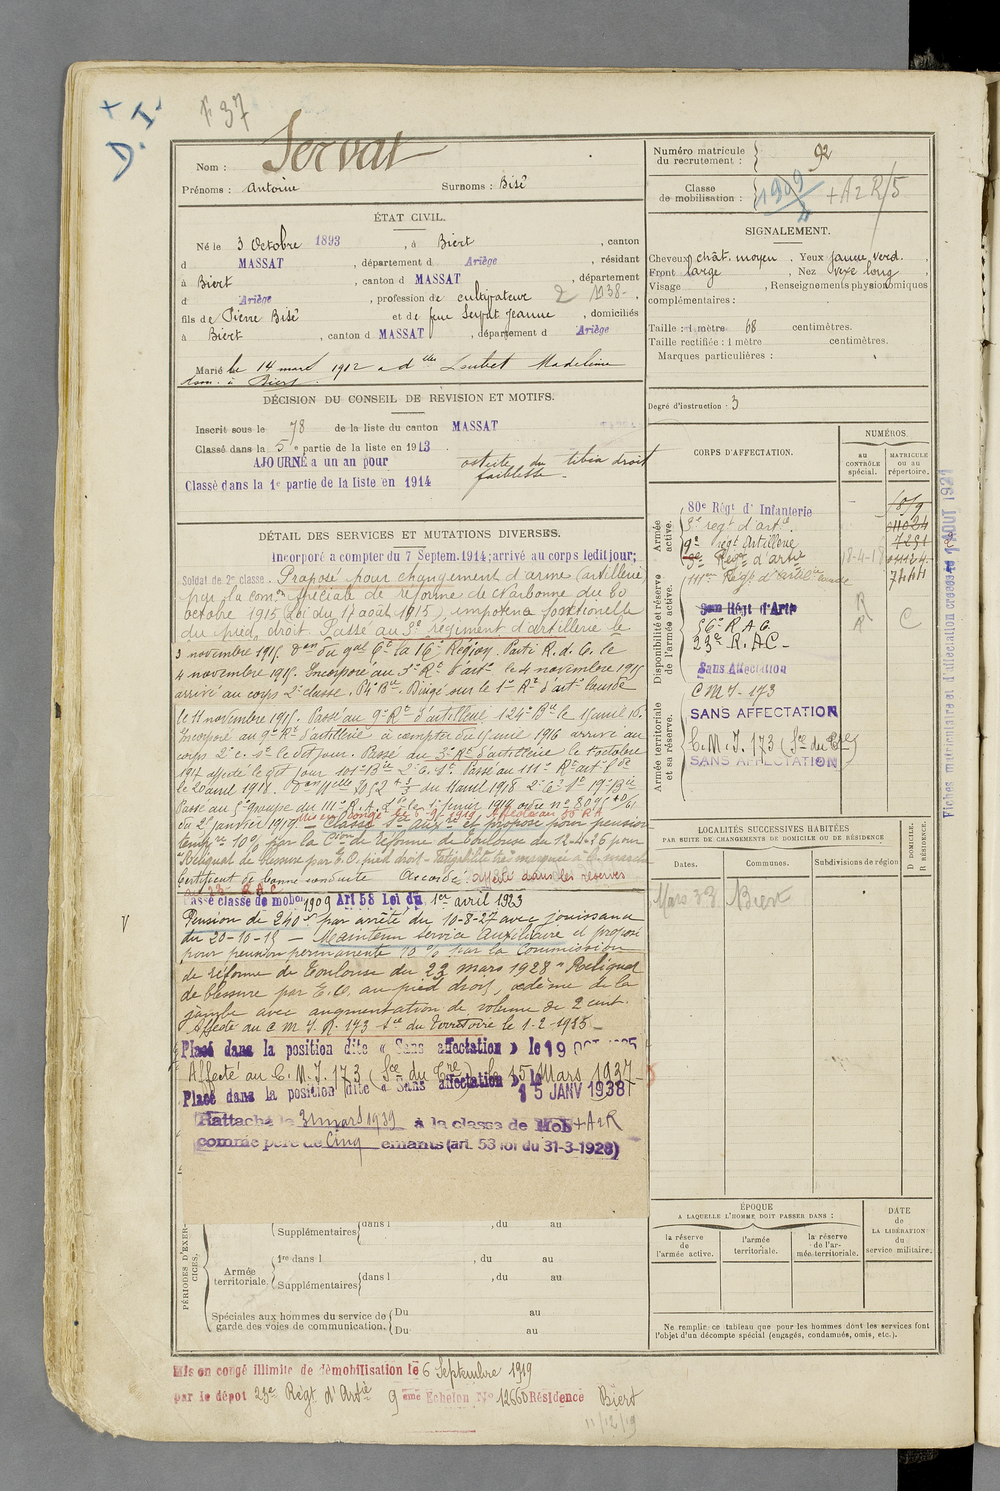 F 37
D.I.
Nom : Servat
Prénoms : Antoine Surnoms : Bisé
ÉTAT CIVIL.
Né le 3 Octobre 1893, à Biert, canton
d MASSAT, département d Ariège, résidant
à Biert, canton d MASSAT, département
d Ariège, profession de cultivateur 2 1938.
fils de Pierre Bisé et de feue Servat Jeanne, domiciliés
à Biert, canton d MASSAT, département d Ariège
Marié le 14 mars 1912 a dlle Loubet Madeleine
dom. à Biert.
DÉCISION DU CONSEIL DE RÉVISION ET MOTIFS.
Inscrit sous le n° 78 de la liste du canton MASSAT
Classé dans la 5e partie de la liste en 1913
AJOURNÉ a un an pour ostéite du tibia droit
faiblesse
Classé dans la 1e partie de la liste en 1914
DÉTAIL DES SERVICES ET MUTATIONS DIVERSES.
Incorporé a compter du 7 Septem. 1914; arrivé au corps ledit jour;
Soldat de 2e classe. Proposé pour changement d'arme (artillerie)
par la comon spéciale de réforme de Narbonne du 20
octobre 1915 (Loi du 17 août 1915) impotence fonctionelle
du pied droit. Passé au 3e régiment d'artillerie le
3 novembre 1915. don du gal Ct la 16e Région. Parti R. d. C. le
4 novembre 1915. Incorporé au 3e Rt d'artie le 4 novembre 1915
arrivé au corps 2e classe. Pt Bie. Dirigé sur le 1er Rt d'artie lourde
le 11 novembre 1915. Passé au 9e Rt d'artillerie 124e Bie le 1 avril 16.
Incorporé au 9e Rt d'artillerie à compter du 1 avril 1916 arrivé au
corps 2e c. st le dit jour. Passé au 3e Rt d'artillerie le 1 octobre
1917 affecté le dit jour 101e Bie 2e C. St. Passé au 111e Rt art lde
le 20 avril 1918. du 11 avril 1918 2e C St 19e Bie
Passé au 5e groupe du 111e R.A.L. le 1er février 1919 ordre no 8095
du 25 janvier 1919. Mis en congé le 6-9-1919. Affecté au 56 RA
Classé Sce auxre et proposé pour pension
tempre 10% par la Cion de réforme de Toulouse du 26 pour
"Reliquat de blessure par E.O. pied droit - fatigabilité très marquée à la marche
Certificat de bonne conduite Accordé. affecté dans les réserves
au 23e R.A.C.
Passé classe de mobon 1909 Art 58 Loi du 1er avril 1923
Pension de 240f par arrêté du 10-8-27 avec jouissance
du 20-10-15 — Maintenu service auxiliaire et proposé
pour pension permanente 10% par la Commission
de réforme de Toulouse du 23 mars 1928 "Reliquat
de blessure par E.O. au pied droit, œdème de la
jambe avec augmentation de volume de 2 cent.
Affecté au C M I. R. 173 Sce du Territoire le 1-2-1935 —
Placé dans la position dite « Sans affectation » le 19 OCT
Affecté au C. M. I. 173 (Sce du Tre) le 15 Mars 1937
Placé dans la position dite « Sans affectation » le 15 JANV 1938
Rattaché le 31 mars 1939 à la classe de Mob + A2R
comme père de Cinq enfants (art. 58 loi du 31-3-1928)
PÉRIODES D'EXERCICES.
Supplémentaires dans l , du au
Armée territoriale.
1re dans l , du au
Supplémentaires dans l , du au
Spéciales aux hommes du service de garde des voies de communication.
Du au
Du au
Mis en congé illimité de démobilisation le 6 Septembre 1919
par le dépôt 23e Régt d'Artie 9eme Echelon No 12660 Résidence Biert
11/12/19
Numéro matricule du recrutement : 92
Classe de mobilisation : 1909 + A2R/5
SIGNALEMENT.
Cheveux chât. moyen. Yeux jaune verd.
Front large, Nez vexe long,
Visage , Renseignements physionomiques
complémentaires :
Taille : 1 mètre 68 centimètres.
Taille rectifiée : 1 mètre centimètres.
Marques particulières :
Degré d'instruction : 3
CORPS D'AFFECTATION.
NUMÉROS
AU CONTRÔLE spécial.
MATRICULE ou au répertoire.
Armée active.
80e Régt d'Infanterie
3e regt d'artie 11024
9e regt Artillerie 7231
3e Regt d'artie 18-4-18 01112
111me Régt d'artillerie lourde 7444
Disponibilité et réserve de l'armée active.
Régt d'Artie
56e R.A.C. R
23e R.A.C - R C
Sans Affectation
C M I - 173
Armée territoriale et sa réserve.
SANS AFFECTATION
C. M. I. 173 (Sce du Tre)
SANS AFFECTATION
Fiches matriculaire et d'affectation creées le 1 AOUT 1927
LOCALITÉS SUCCESSIVES HABITÉES
PAR SUITE DE CHANGEMENTS DE DOMICILE OU DE RÉSIDENCE
Dates. Communes. Subdivisions de région D DOMICILE. R RÉSIDENCE.
Mars 38 Biert
ÉPOQUE
A LAQUELLE L'HOMME DOIT PASSER DANS :
la réserve de l'armée active.
l'armée territoriale.
la réserve de l'armée territoriale.
DATE de LA LIBÉRATION du service militaire.
Ne remplir ce tableau que pour les hommes dont les services font
l'objet d'un décompte spécial (engagés, condamnés, omis, etc.).